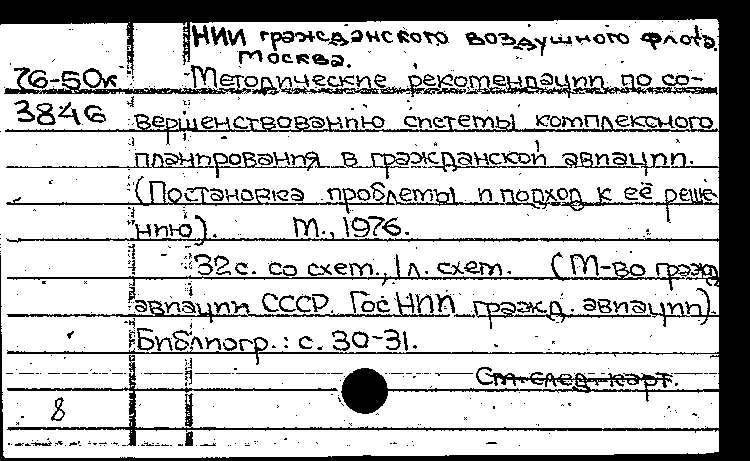 НИИ гражданского воздушного флота.
Москва.
76-50к Методические рекомендации по со-
3846 вершенствованию системы комплексного
планирования в гражданской авиации.
(Постановка проблемы и подход к её реше
нию). М., 1976.
32 с. со схем., 1 л. схем. (М-во гражд.
авиации СССР. Гос НИИ гражд. авиации).
Библиогр.: с. 30-31.
См. след. карт.
8